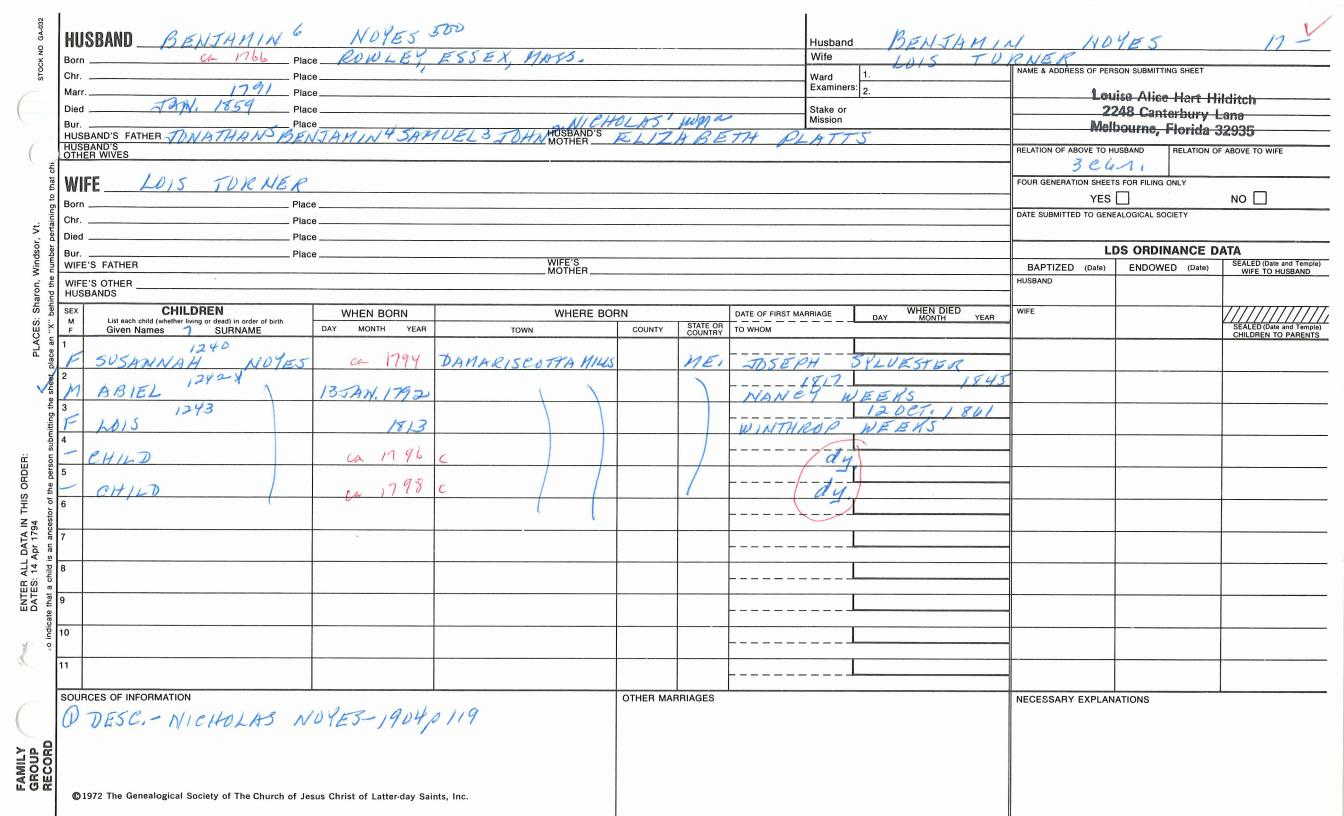 STOCK NO. GA-032
HUSBAND BENJAMIN 6 NOYES 500
Born ca 1766 Place ROWLEY, ESSEX, MASS.
Chr. Place
Marr. 1791 Place
Died JAN. 1859 Place
Bur. Place
HUSBAND'S FATHER JONATHAN5 BENJAMIN4 SAMUEL3 JOHN2 NICHOLAS1 HUSBAND'S MOTHER ELIZABETH PLATTS
HUSBAND'S OTHER WIVES
Husband BENJAMIN NOYES 17 –
Wife LOIS TURNER
Ward Examiners: 1.
2.
Stake or Mission
NAME & ADDRESS OF PERSON SUBMITTING SHEET
Louise Alice Hart Hilditch
2248 Canterbury Lane
Melbourne, Florida 32935
RELATION OF ABOVE TO HUSBAND RELATION OF ABOVE TO WIFE
FOUR GENERATION SHEETS FOR FILING ONLY
YES NO
DATE SUBMITTED TO GENEALOGICAL SOCIETY
WIFE LOIS TURNER
Born Place
Chr. Place
Died Place
Bur. Place
WIFE'S FATHER WIFE'S MOTHER
WIFE'S OTHER HUSBANDS
LDS ORDINANCE DATA
BAPTIZED (Date) ENDOWED (Date) SEALED (Date and Temple) WIFE TO HUSBAND
HUSBAND
WIFE
SEALED (Date and Temple) CHILDREN TO PARENTS
SEX M F CHILDREN WHEN BORN WHERE BORN DATE OF FIRST MARRIAGE WHEN DIED
List each child (whether living or dead) in order of birth
Given Names 7 SURNAME DAY MONTH YEAR TOWN COUNTY STATE OR COUNTRY TO WHOM DAY MONTH YEAR
1 F SUSANNAH 1240 NOYES ca 1794 DAMARISCOTTA MILLS ME. JOSEPH SYLVESTER
2 M ABIEL 1242 x 13 JAN. 1792 1817 1845 NANCY WEEKS
3 F LOIS 1243 1813 12 OCT. 1861 WINTHROP WEEKS
4 – CHILD ca 1796 c dy
5 – CHILD ca 1798 c dy.
6
7
8
9
10
11
SOURCES OF INFORMATION
① DESC.- NICHOLAS NOYES-1904 p 119
OTHER MARRIAGES
NECESSARY EXPLANATIONS
©1972 The Genealogical Society of The Church of Jesus Christ of Latter-day Saints, Inc.
FAMILY GROUP RECORD
ENTER ALL DATA IN THIS ORDER:
DATES: 14 Apr 1794
PLACES: Sharon, Windsor, Vt.
o indicate that a child is an ancestor of the person submitting the sheet, place an "X" behind the number pertaining to that chi